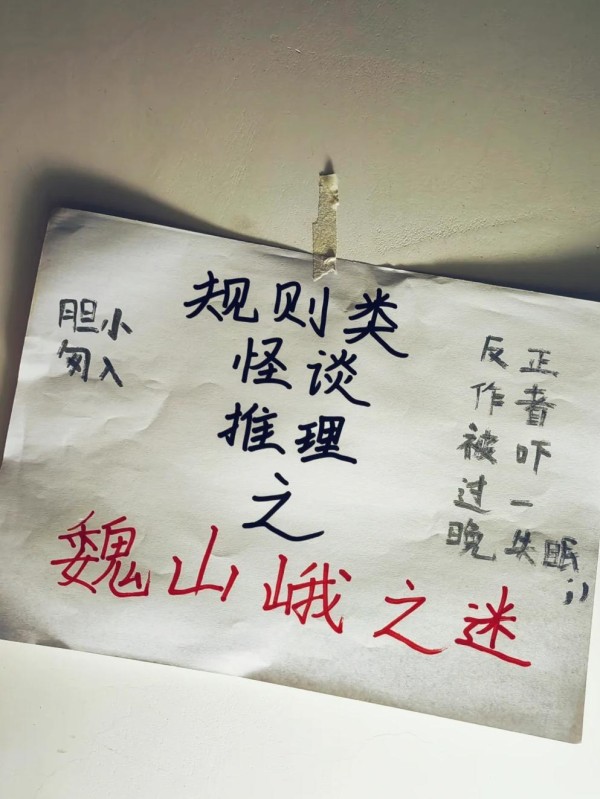 胆小
匆入
规则类
怪谈
推理
之
魏山峨之迷
反正
作者
被吓
过一
晚失眠
;)